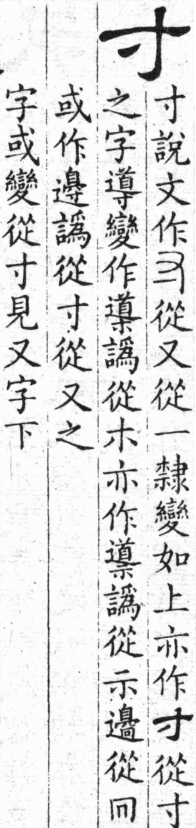 寸
寸說文作𡬝從又從一隸變如上亦作寸從寸
之字導變作䆃譌從木亦作導譌從示邊從冋
或作邊譌從寸從又之
字或變從寸見又字下